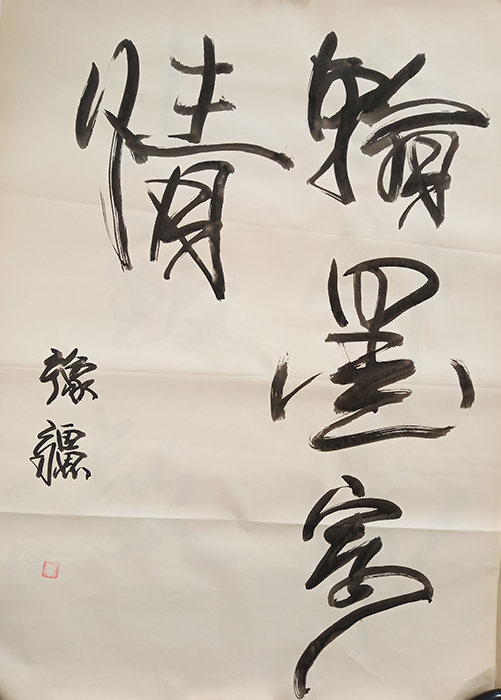 翰墨寄
情
豫疆